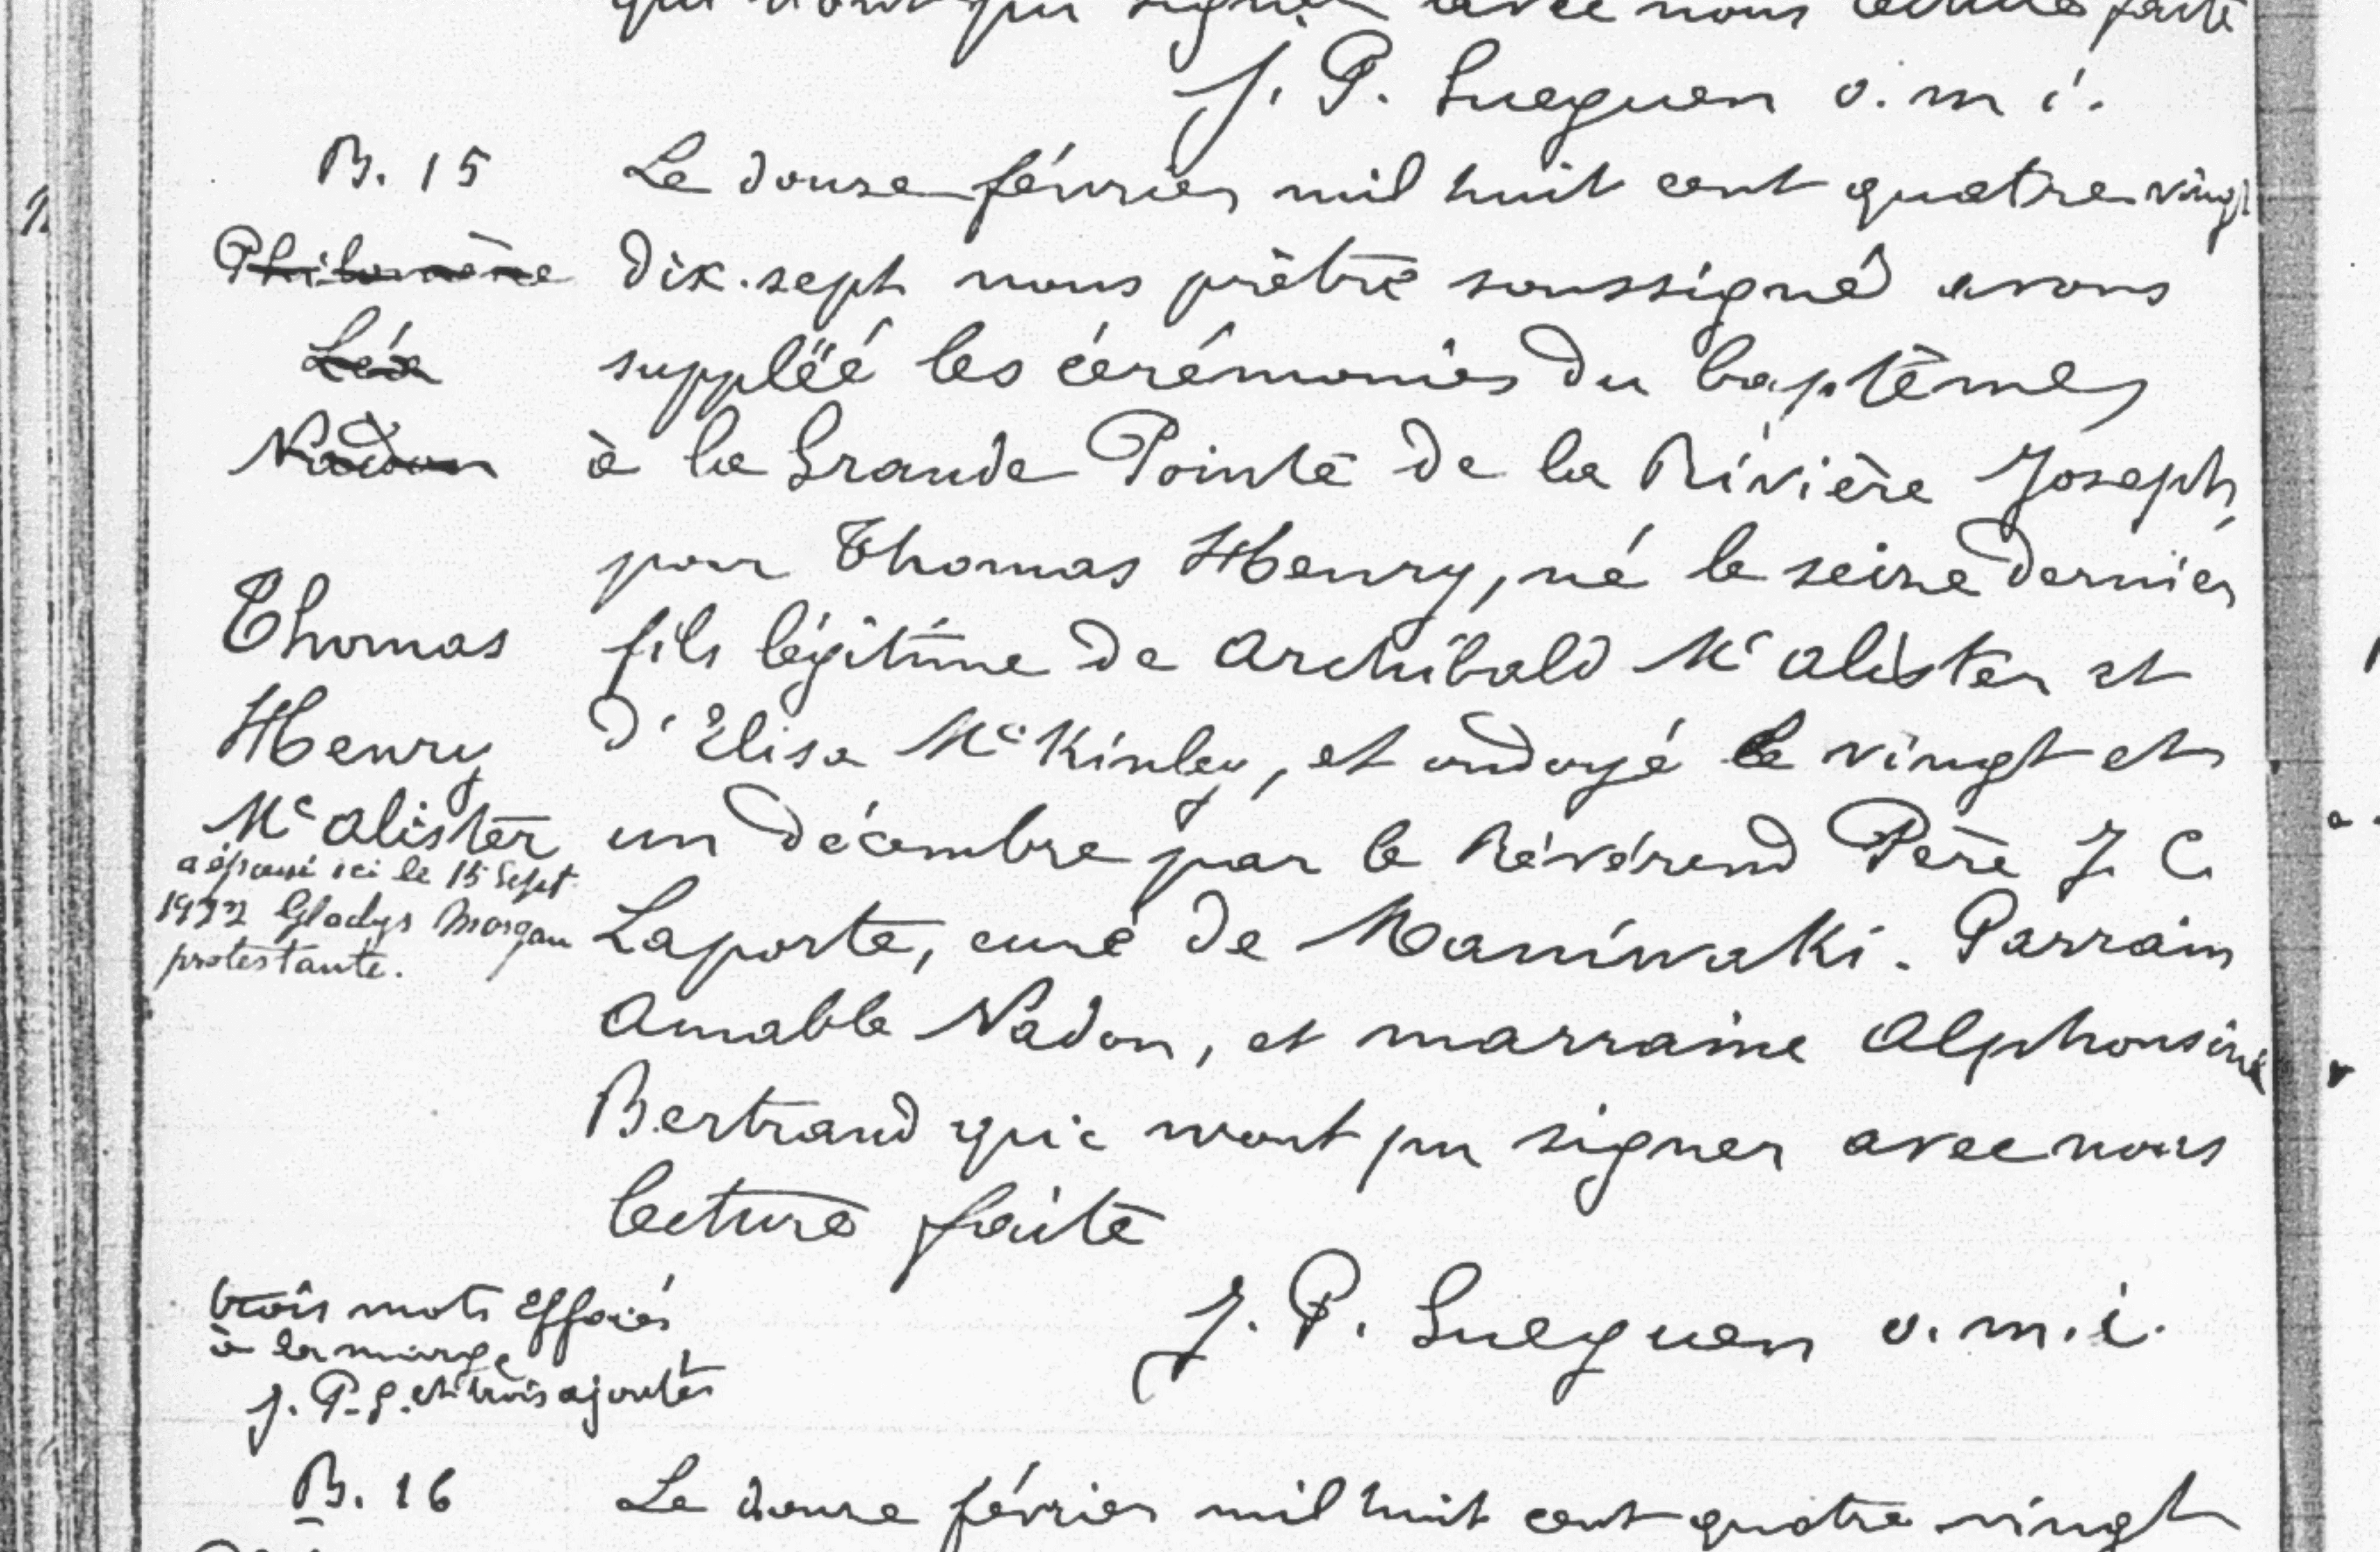 qui n'ont pu signer avec nous lecture faite
J. P. Gueguen o. m i.
B. 15
Le douze février mil huit cent quatre vingt
Philomène
dix-sept nous prêtre soussigné avons
Léa
suppléé les cérémonies du baptême,
Nadon
à la Grande Pointe de la Rivière Joseph,
pour Thomas Henry, né le seize dernier
Thomas
fils légitime de Archibald Mc alister et
Henry
d'Elisa McKinley, et ondoyé le vingt et
Mc alister
un décembre par le Révérend Père J. C.
a épousé ici le 15 Sept.
Gladys Morgan
Laporte, curé de Maniwaki. Parrain
protestante.
Amable Nadon, et marraine Alphonsine
Bertrand qui n'ont pu signer avec nous
lecture faite
trois mots effacés
à la marge
J. P. Gueguen o. m. i.
J. P. G. et trois ajoutés
B. 16
Le douze février mil huit cent quatre vingt